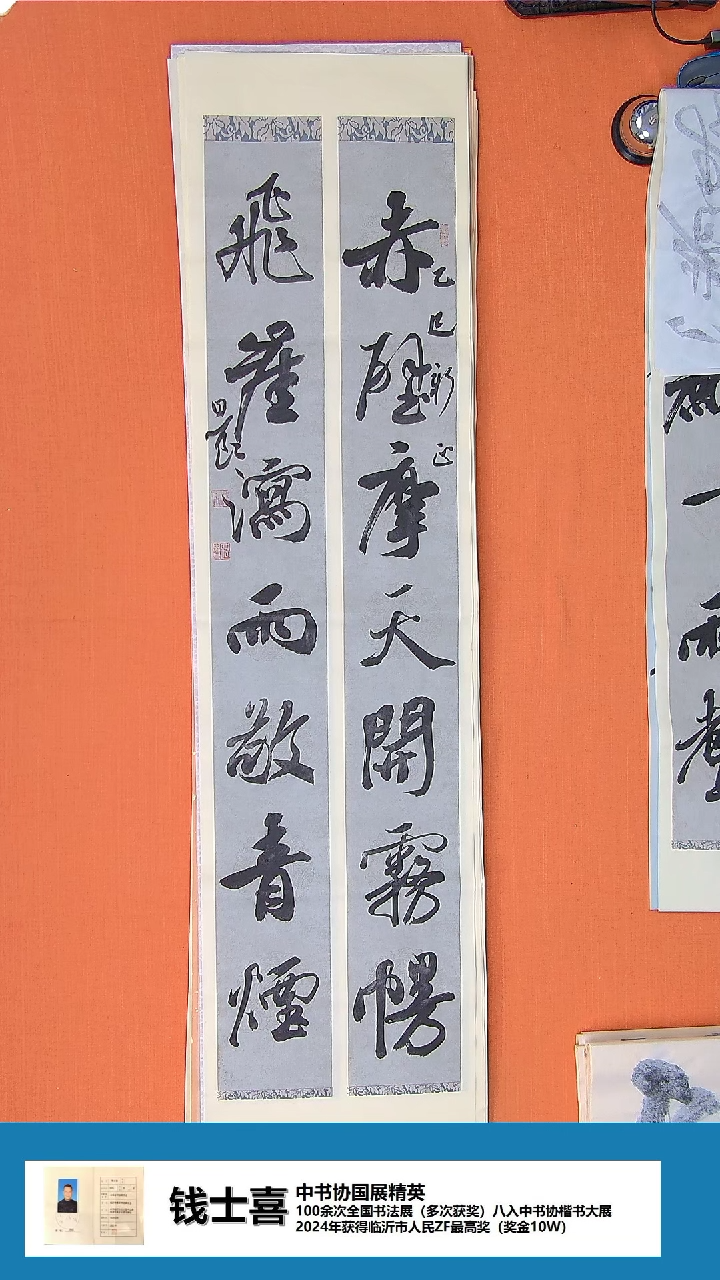 赤壁摩天開霧幌
乙巳新正
飛崖瀉雨散青煙
钱士喜
中书协国展精英
100余次全国书法展（多次获奖）八入中书协楷书大展
2024年获得临沂市人民ZF最高奖（奖金10W）